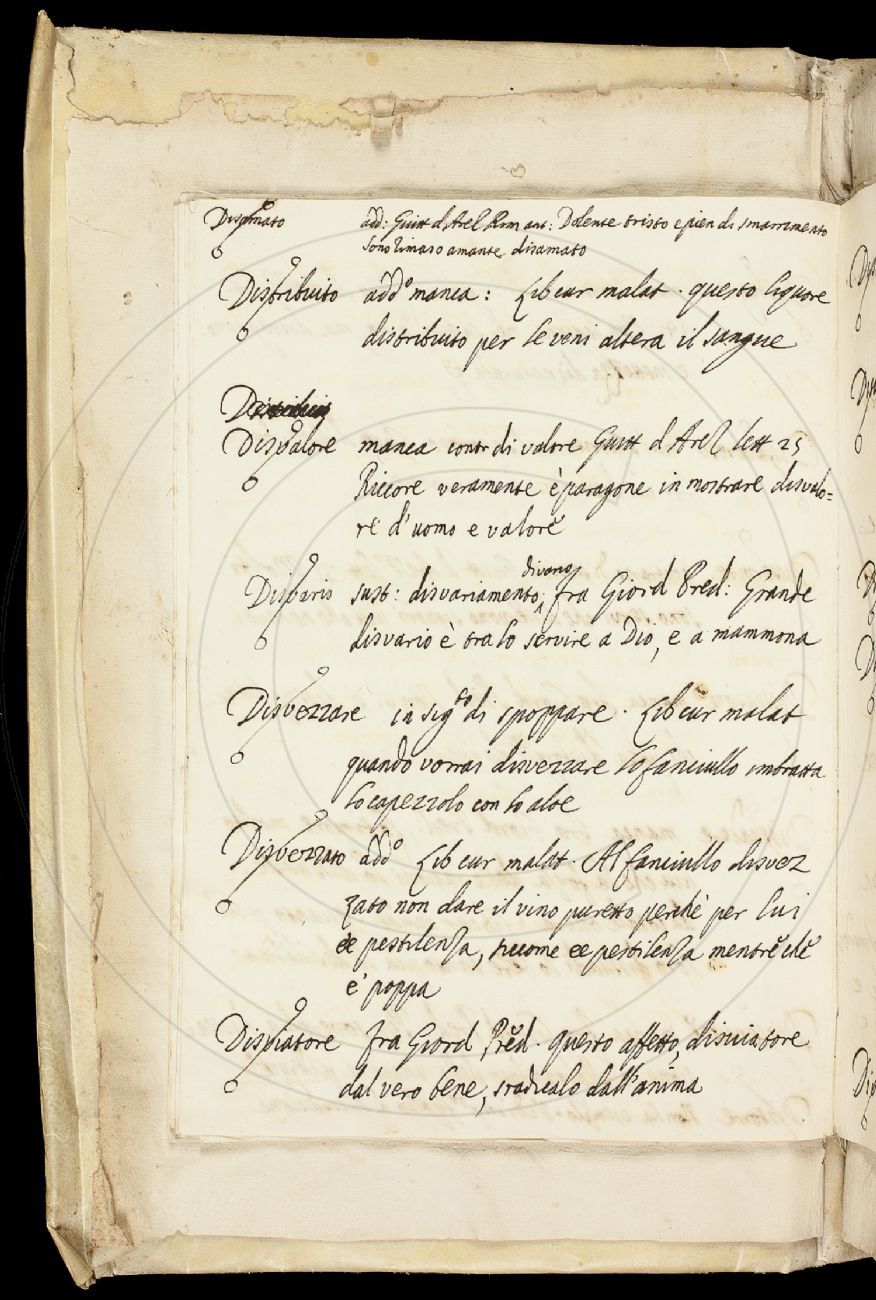 Disamato add: Guitt d'Arez Rim ant: Dolente tristo e pien di smarrimento
sono rimaso amante disamato
Distribuito addo manca: Lib cur malat. questo liquore
distribuito per le veni altera il sangue
Disvalore manca contr di valore Guitt d'Arez lett 25
Riccore veramente è paragone in mostrare disvalo=
re d'uomo e valore
Disvario sust: disvariamento, divario, fra Giord Pred: Grande
disvario è tra lo servire a Dio, e a mammona
Disvezzare in sigto di spoppare. Lib cur malat
quando vorrai disvezzare lo fanciullo imbratta
lo capezzolo con lo aloe
Disvezzato addo Lib cur malat. Al fanciullo disvez
zato non dare il vino puretto perchè per lui
èe pestilenza, siccome ee pestilenza mentre che
e' poppa
Disviatore fra Giord Pred. questo affetto, disviatore
dal vero bene, sradicalo dall'anima